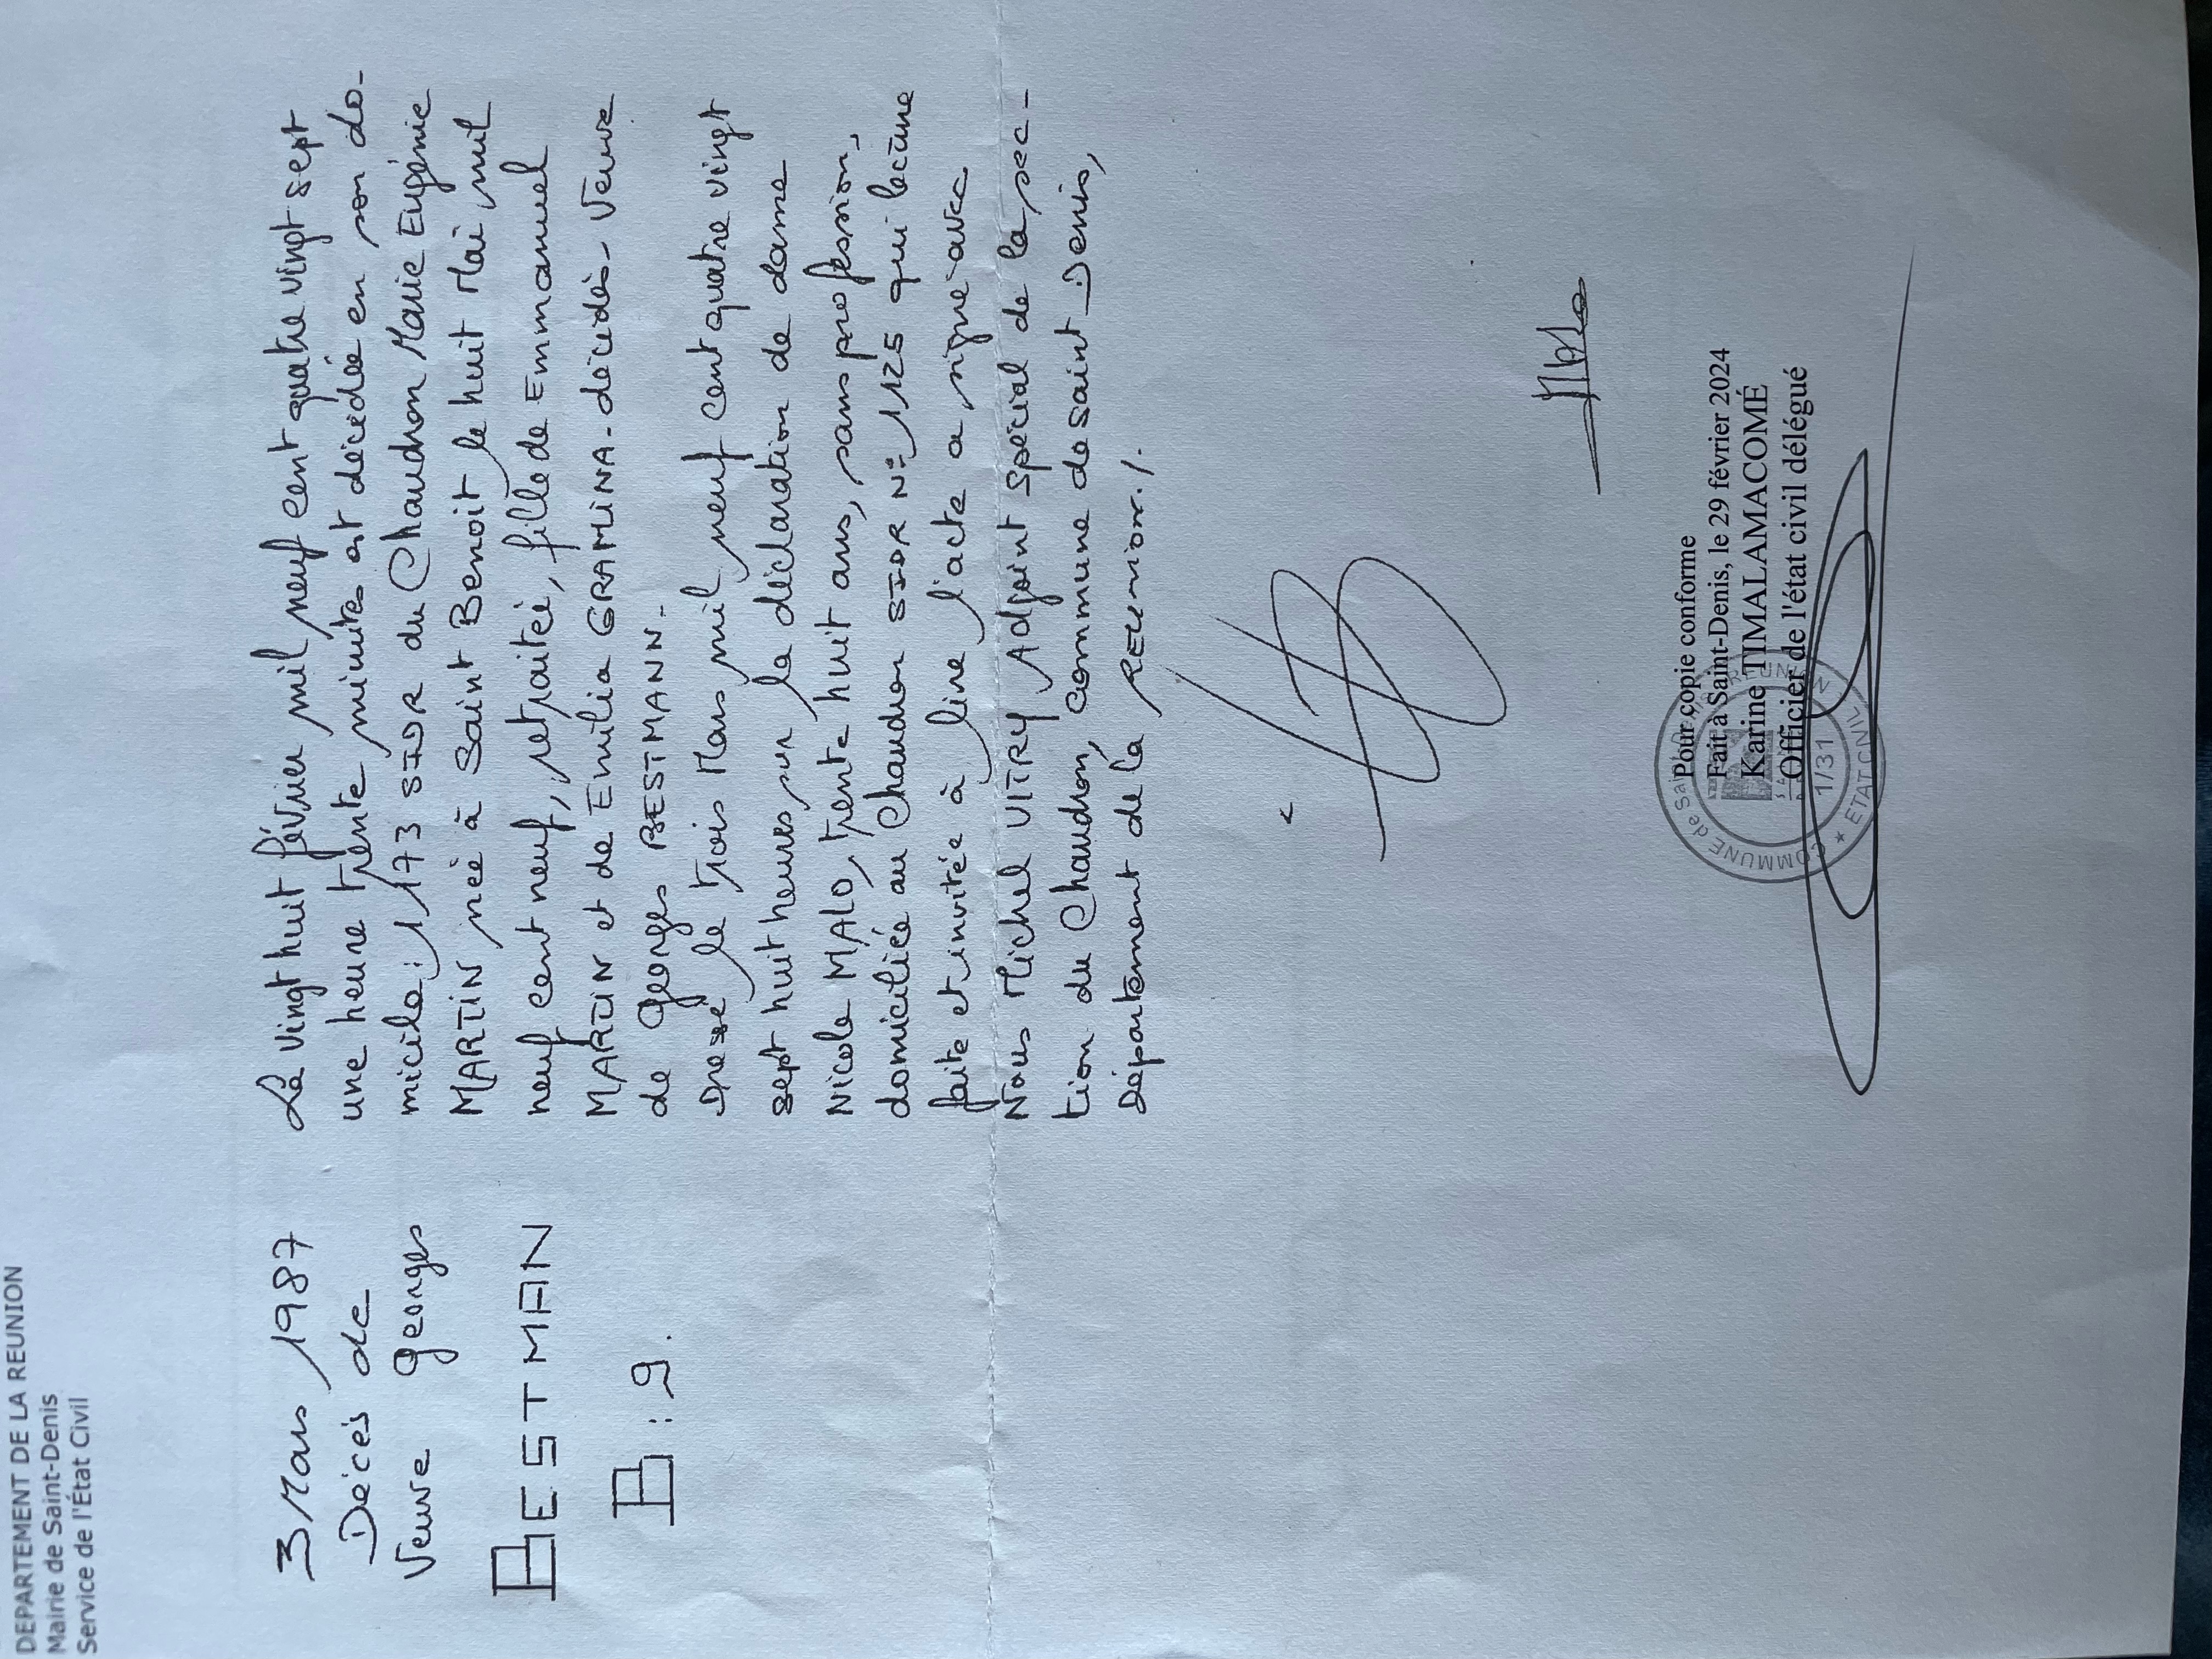 DEPARTEMENT DE LA REUNION
Mairie de Saint-Denis
Service de l'État Civil
3 Mars 1987
Décès de
Veuve Georges
BESTMAN
B : 9.
Le vingt huit février mil neuf cent quatre vingt sept
une heure trente minutes est décédée en son do-
micile : 1173 SIDR du Chaudron Marie Eugénie
MARTIN née à Saint Benoit le huit Mai mil
neuf cent neuf, retraitée, fille de Emmanuel
MARTIN et de Emilia GRAMINA - décédés - Veuve
de Georges BESTMANN -
Dressé le trois Mars mil neuf cent quatre vingt
sept huit heures sur la déclaration de dame
Nicole MALO, trente huit ans, sans profession,
domiciliée au Chaudron SIDR N° 1125 qui lecture
faite et invitée à lire l'acte a signé avec
Nous Michel VITRY Adjoint spécial de la sec-
tion du Chaudron, commune de saint Denis,
Département de la REUNION. /.
Malo
Pour copie conforme
Fait à Saint-Denis, le 29 février 2024
Karine TIMALAMACOMÉ
Officier de l'état civil délégué
COMMUNE de Saint-Denis REUNION
1/31
★ ETAT CIVIL